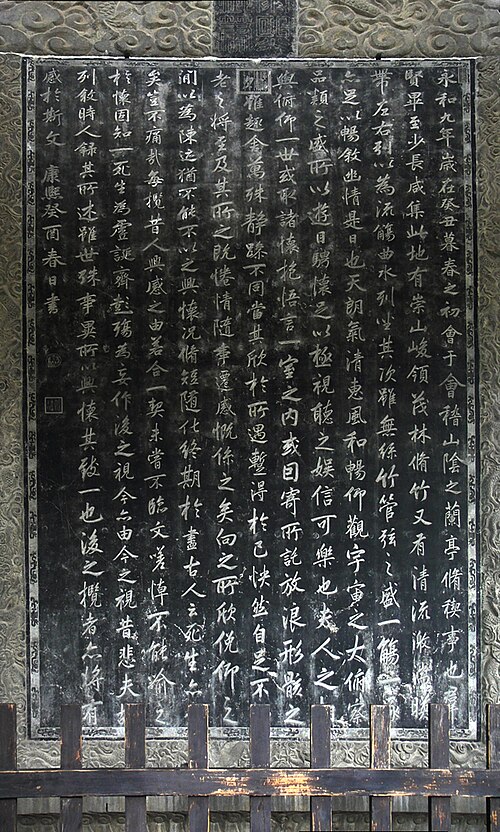 永和九年歲在癸丑暮春之初會于會稽山陰之蘭亭脩禊事也羣
賢畢至少長咸集此地有崇山峻領茂林脩竹又有清流激湍映
帶左右引以為流觴曲水列坐其次雖無絲竹管弦之盛一觴一
亦足以暢敘幽情是日也天朗氣清惠風和暢仰觀宇宙之大俯察
品類之盛所以遊目騁懷足以極視聽之娛信可樂也夫人之
與俯仰一世或取諸懷抱悟言一室之內或因寄所託放浪形骸之
雖趣舍萬殊靜躁不同當其欣於所遇蹔得於己快然自足不
老之將至及其所之既惓情隨事遷感慨係之矣向之所欣俛仰之
間以為陳迹猶不能不以之興懷況脩短隨化終期於盡古人云死生亦
矣豈不痛哉每攬昔人興感之由若合一契未嘗不臨文嗟悼不能喻之
於懷固知一死生為虛誕齊彭殤為妄作後之視今亦由今之視昔悲夫故
列敘時人錄其所述雖世殊事異所以興懷其致一也後之攬者亦將有
感於斯文 康熙癸酉春日書